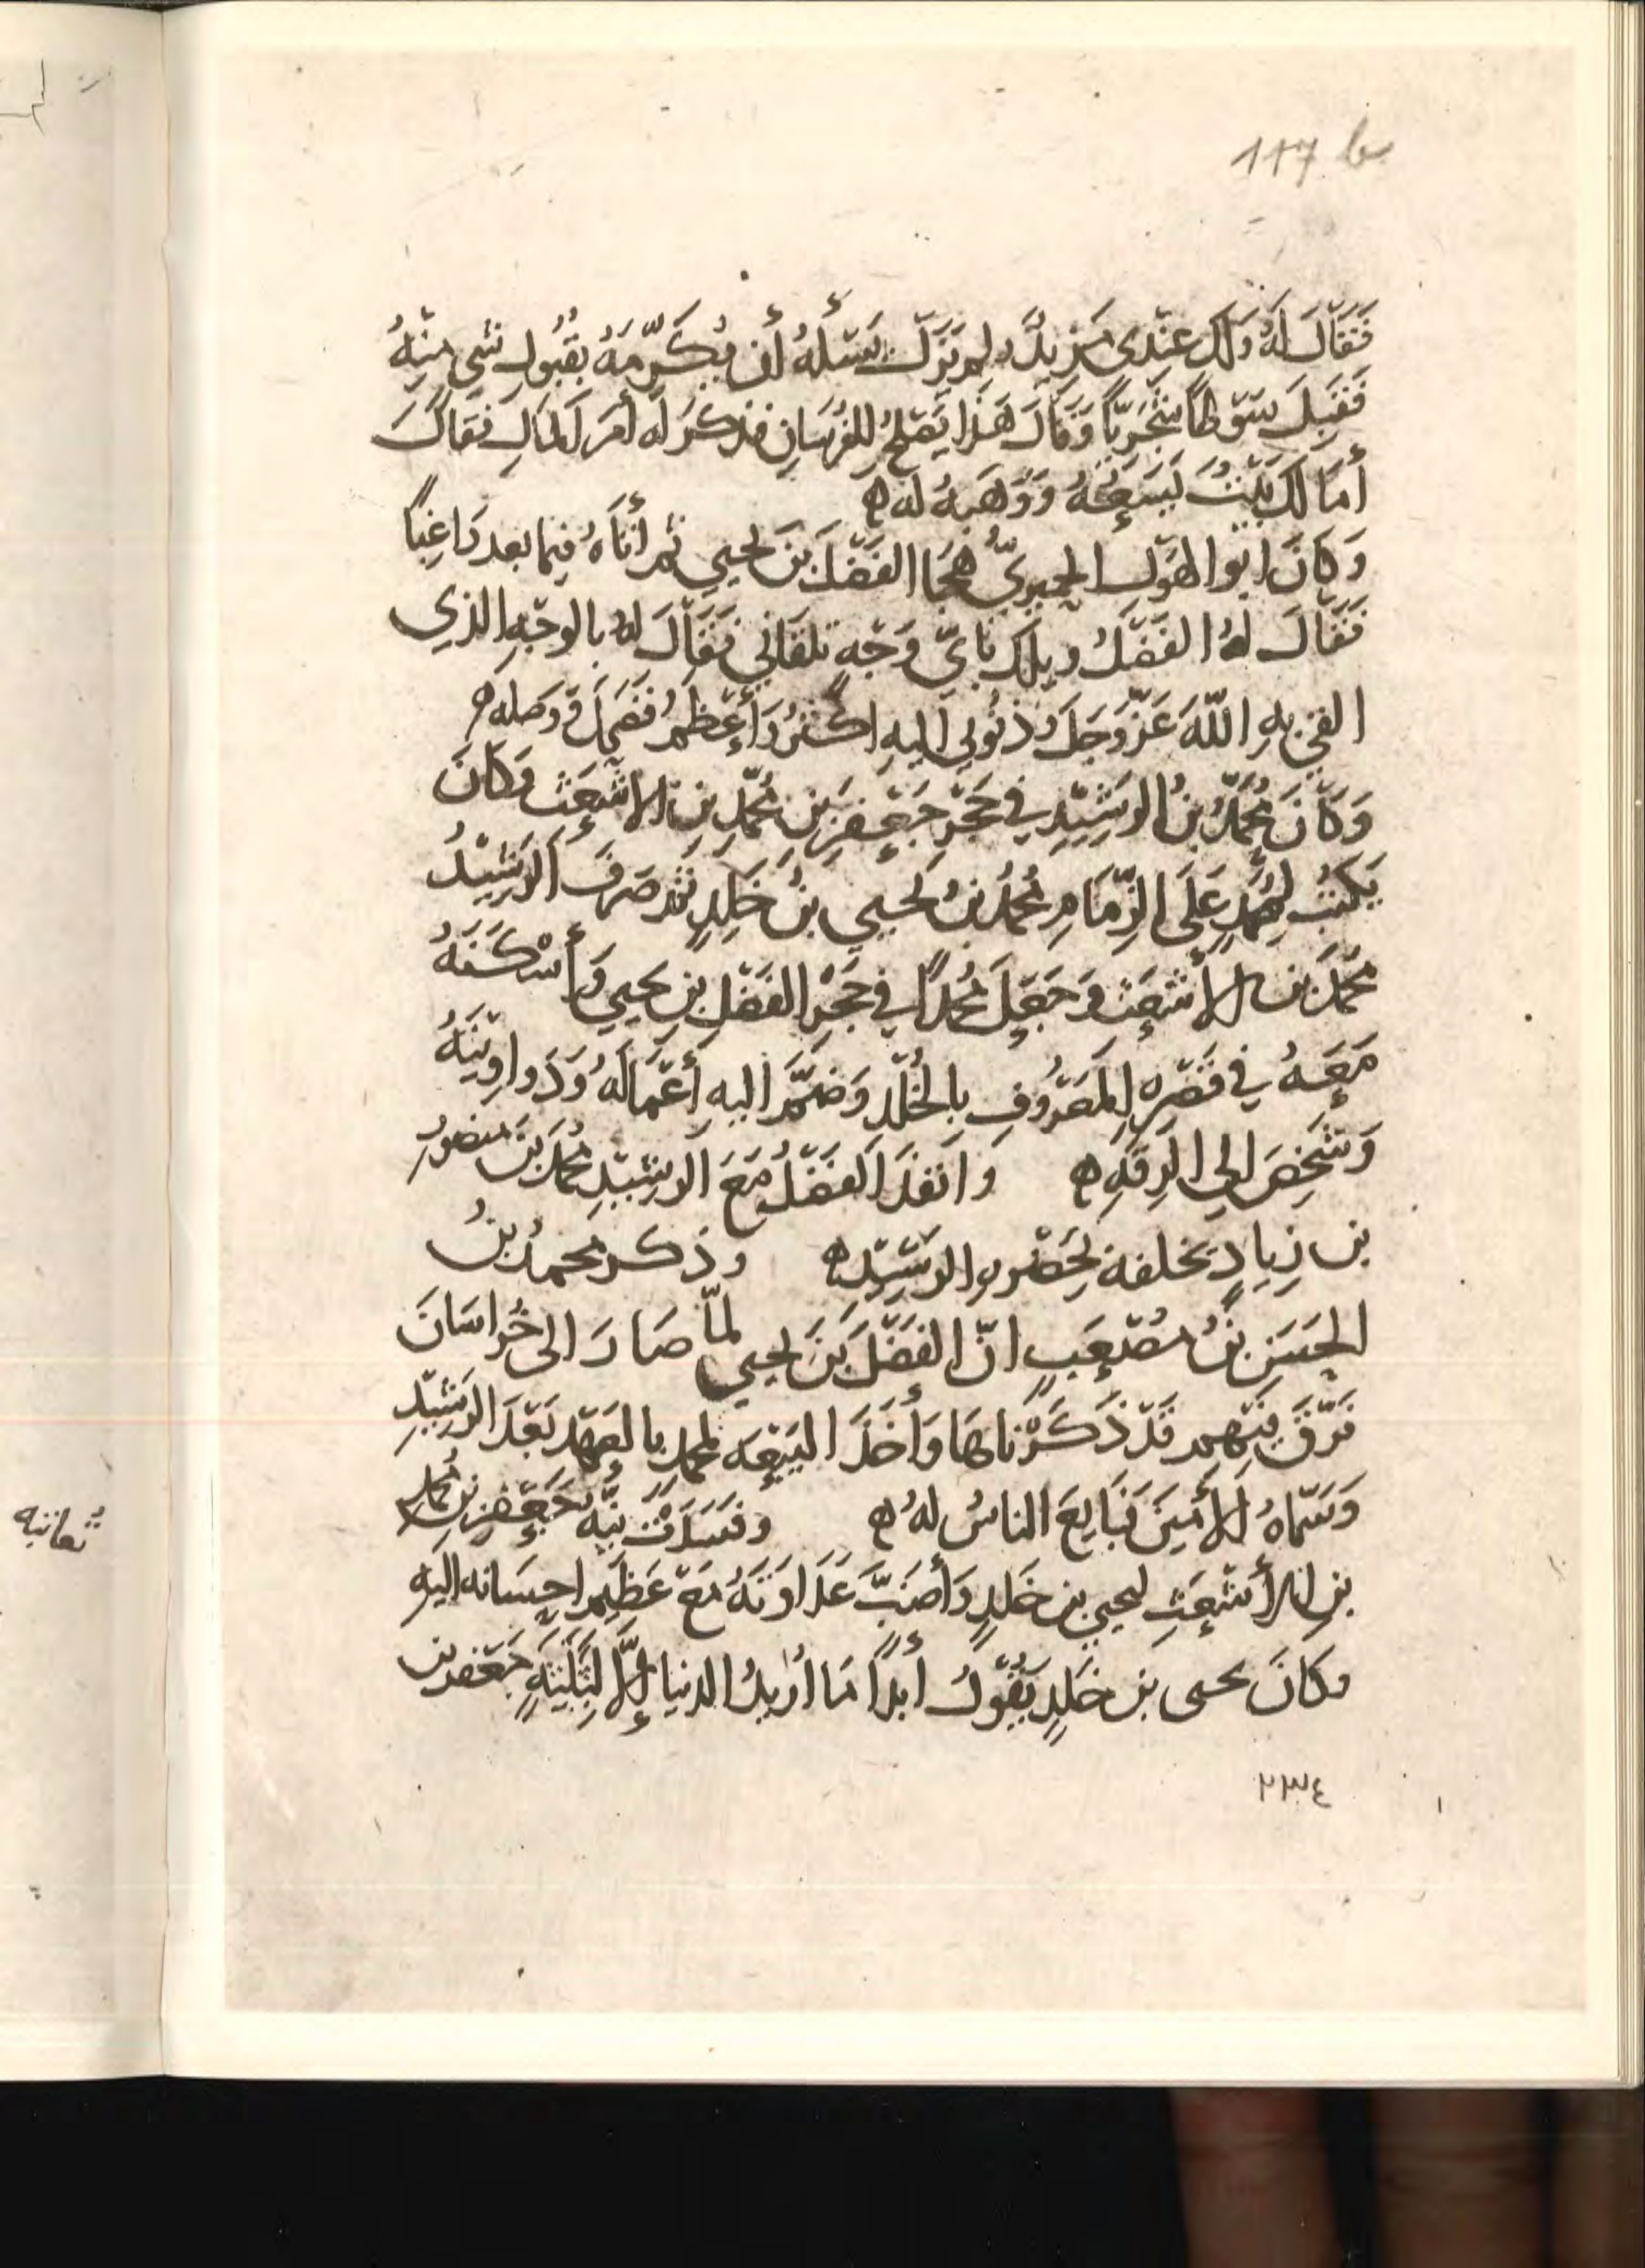 117 b
فَقَالَ لَهُ وَلَكَ عِنْدِى مَزِيدٌ ولم يَزَل يَسْئلُهُ أن يُكَرِّمَهُ بقُبُولِ شى مِنْهُ
فَقَبِلَ سَوْطًا سِجْزِيّاً وَقَالَ هَذَا يَصْلحُ للفُرسَانِ فذكرَ لَه أمرَ المَالِ فقالَ
أمَا لَكَ بَيْتُ يَسَعُهُ وَوَهَبهُ لَه ه
وَكانَ ابو الهَول الحِميرىُّ هَجَا الفَضْلَ بنَ يحيى ثم أتَاهُ فيما بعد رَاغِبًا
فَقَالَ لهُ الفَضْلُ ويلك بايِّ وَجْهٍ تلقَانى فقَالَ لهُ بالوجْهِ الذي
القى بهِ اللّهَ عَزّوَجَلَّ وذنُوبي اليهِ اكثرُ وَأعْظمُ فضَحِكَ ووصَله ه
وَكَانَ مُحَمَّدُ بنُ الرَشِيْدِ في حَجْرِ جَعْفرِ بنِ مُحمّدِ بنِ الاشْعَث وَكانَ
يَكتُبُ لمُحمَّدٍ عَلَى الزِّمَامِ مُحمّدُ بنُ يحيي بنُ خَلِدٍ ثم صَرفَ الرَشِيْدُ
مُحَمّدَ بن الأشعَث وَجَعَلَ مُحمدًا في حَجْرِ الفَضْلِ بنِ يحيي وَأسْكَنَهُ
مَعَهُ في قَصْرِهِ المَعْرُوفِ بالخُلْدِ وَضَمَّ اليهِ أعْمَالَهُ وَدَواوِيْنَهُ
وَشَخَصَ الي الرقَّهِ ه وَانفذَ الفَضْلُ مَعَ الرشِيْدِ مُحمدَ بنَ منصورِ
بن زِيادٍ يخلفه بحَضْرهِ الرَشِيْدِ ه وذكر محمدُ بنُ
الحَسَنِ بنُ مُصْعَبٍ انّ الفَضْلَ بنَ يحيى لمّا صَارَ الى خُراسَانَ
فَرَّقَ فِيْهِم قَدْ ذَكَرْناهَا وَأخَذَ البَيْعَه لمحمد بالعهْدِ بَعْدَ الرشِيْدِ
وَسَمّاهُ الأمِينَ فَبَايعَ الناسُ لهُ ه وفسَدَتْ نِيّهُ جَعْفرِ بنِ مُحمدِ
بنِ الأشْعَثِ ليحيي بنِ خَلدٍ وَأصَبَّ عَدَاوَتَهُ مَعَ عَظِيمِ احسَانه اليهِ
وكانَ يحيى بن خَلِدٍ يَقُولُ أبدًا مَا اُرِيدُ الدنيا إلّا لِثَلثَهٍ جَعْفر بن
٢٣٤
ثمانيه